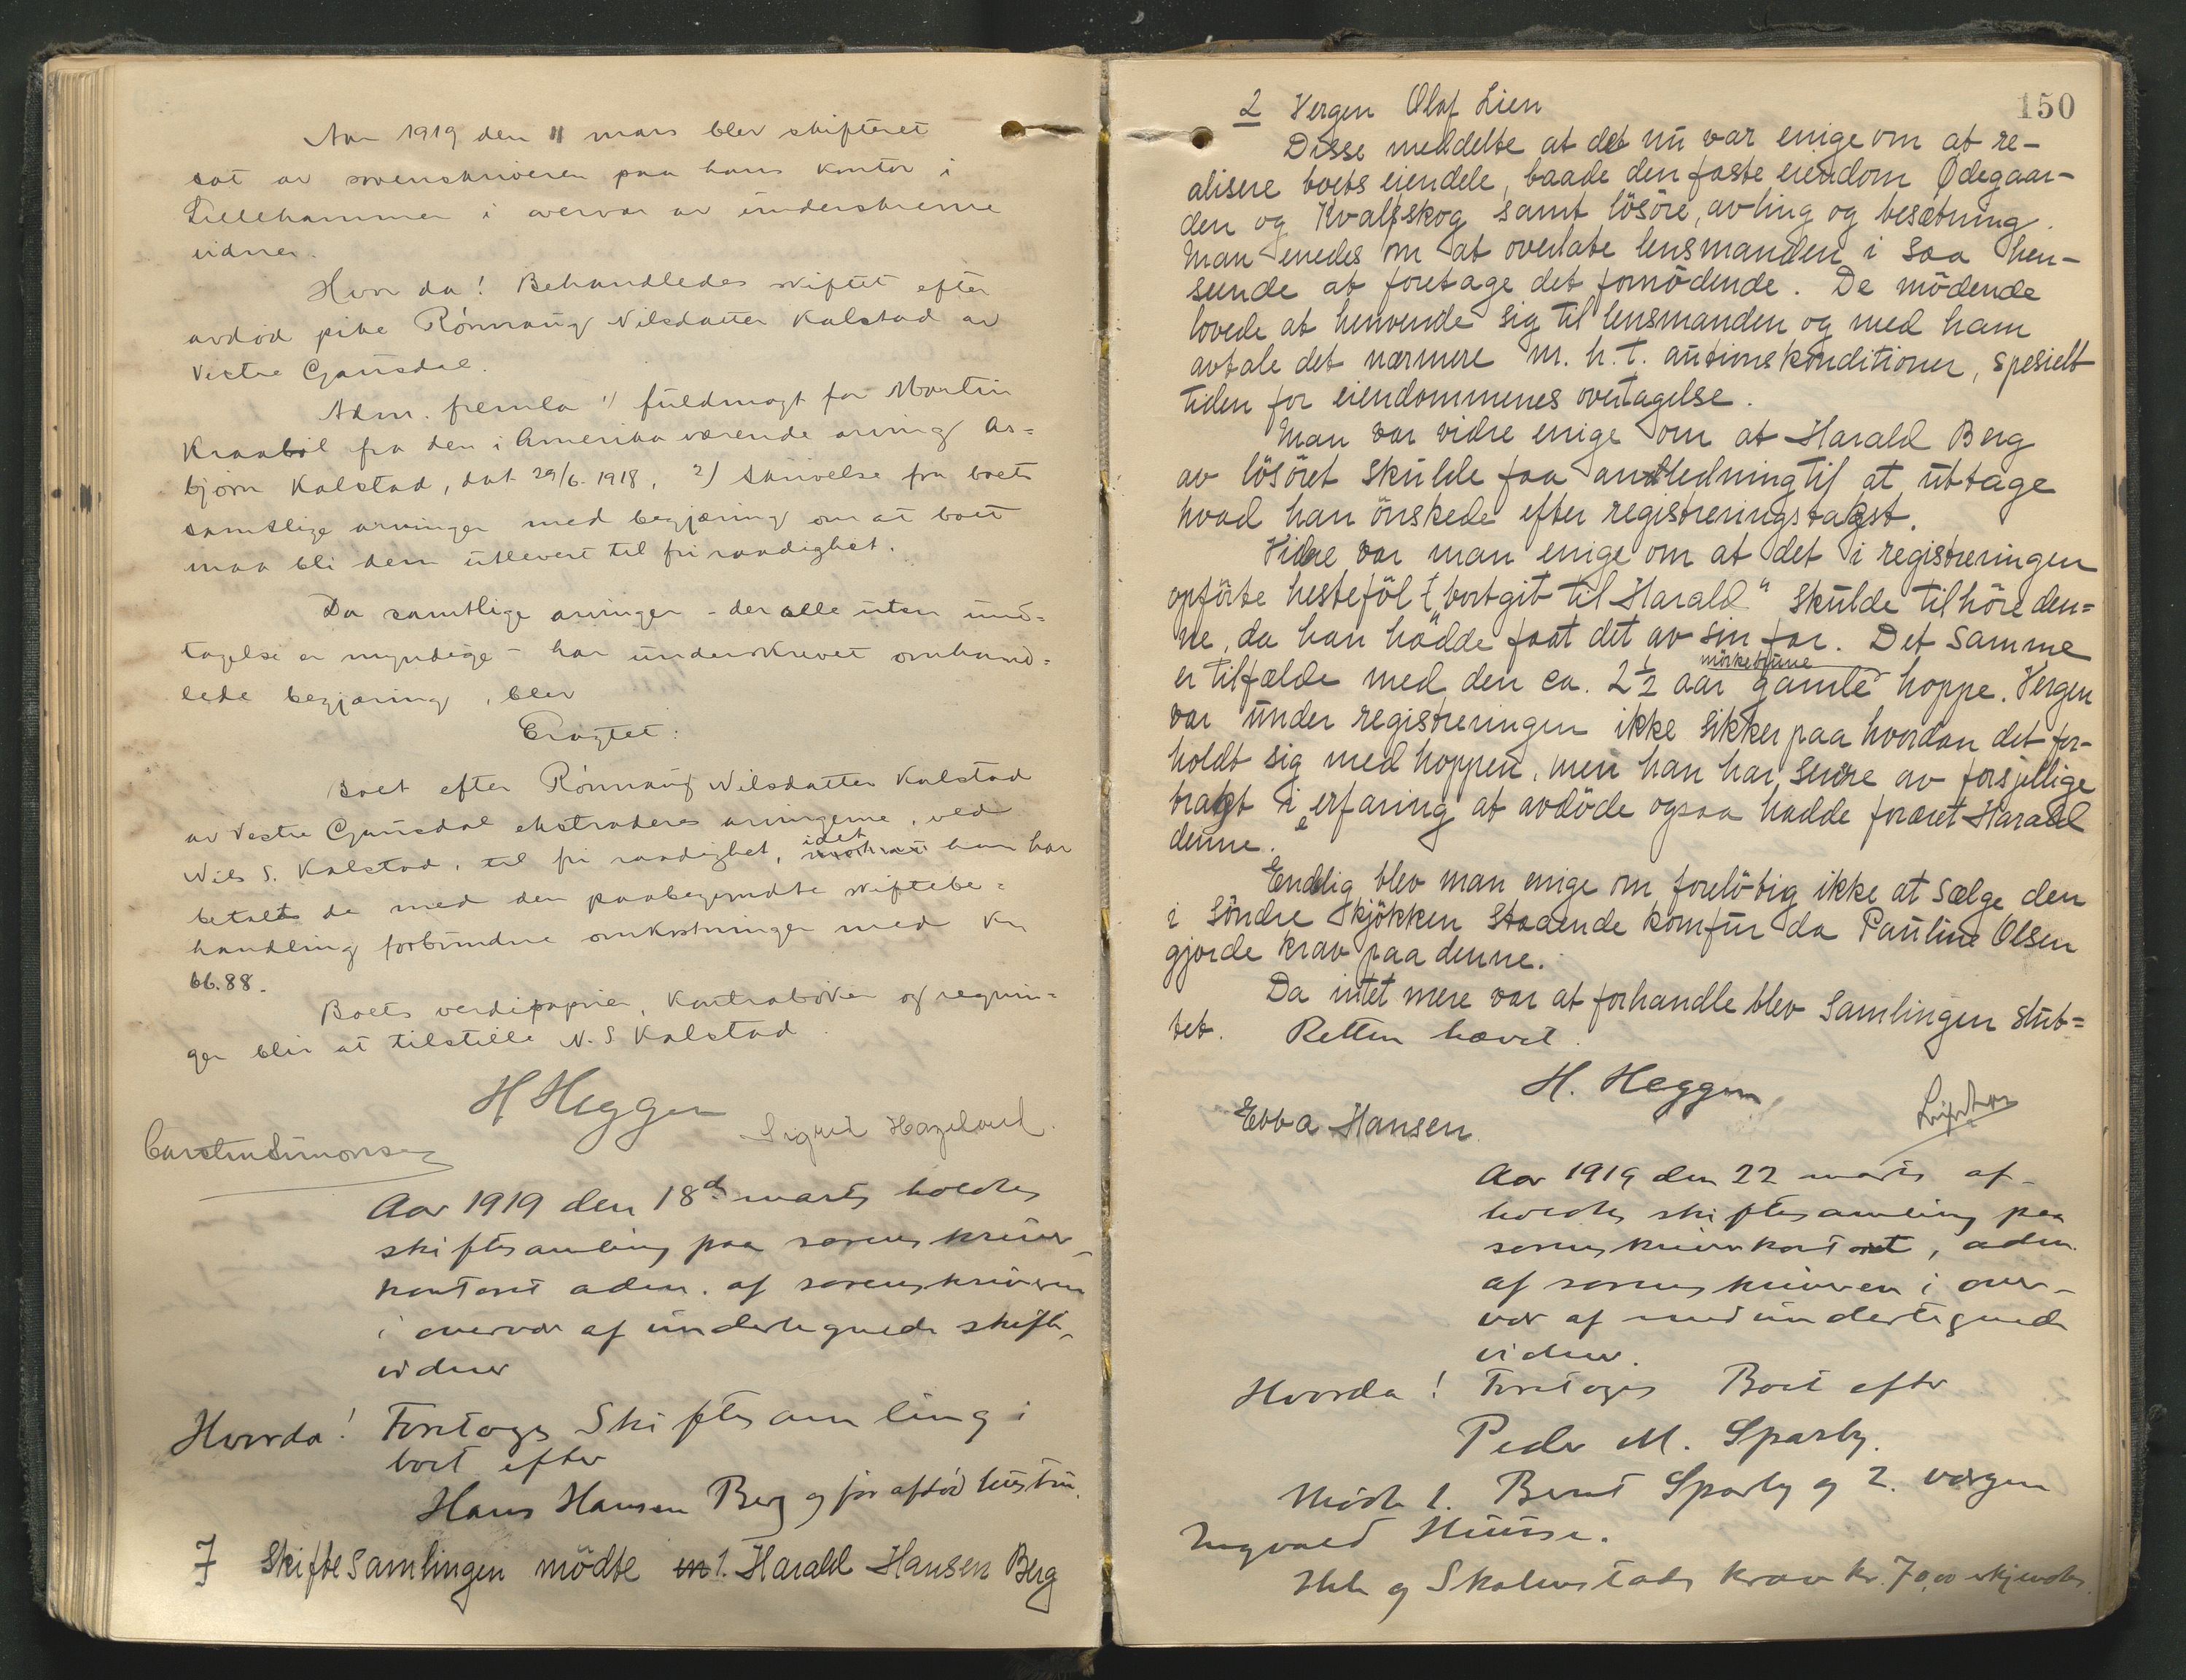 Aar 1919 den 11 mars blev skifteret
sat av sorenskriveren paa hans kontor i
Lillehammer i overvær av underskrevne
vidner.
Hvor da! Behandledes skiftet efter
avdød pike Rönnaug Nilsdatter Kalstad av
Vestre Gausdal.
Adm. fremla 1) fuldmagt for Martin
Kraabøl fra den i Amerika værende arving As=
bjørn Kalstad, dat. 29/6. 1918, 2) skrivelse fra boets
samtlige arvinger med begjæring om at boet
maa bli dem utlevert til fri raadighet.
Da samtlige arvinger - der alle uten und=
tagelse er myndige - har underskrevet omhand=
lede begjæring, blev
Eragtet:
Boet efter Rönnaug Nilsdatter Kalstad
av Vestre Gausdal ekstraderes arvingerne, ved
Nils S. Kalstad, til fri raadighet, idet han har
betalt de med den paabegyndte skiftebe=
handling forbundne omkostninger med kr
66.88.
Boets verdipapirer, kontrabøker og regnin=
ger blir at tilstille N. S Kalstad.
H Heggen
Carsten Simonsen
Sigrid Hageland.
Aar 1919 den 18de marts holdtes
skiftesamling paa sorenskriver-
kontoret adm. af sorenskriveren
i overvær af undertegnede skifte-
vidner
Hvorda! Foretoges Skiftesamling i
boet efter
Hans Hansen Berg og før afdød hustru.
I skiftesamlingen mödte en 1. Harald Hansen Berg
150
2 Vergen Olaf Lien
Disse meddelte at det nu var enige om at re-
alisere boets eiendele, baade den faste eiendom Ødegaar-
den og Kvalfskog samt lösöre, avling og besætning.
Man enedes om at overlate lensmanden i saa hen-
seende at foretage det fornödende. De mödende
lovede at henvende sig til lensmanden og med ham
avtale det nærmere m. h. t. auktionskonditioner, spesielt
tiden for eiendommenes overtagelse.
Man var vidre enige om at Harald Berg
av lösöret skulde faa anledning til at uttage
hvad han önskede efter registreringstakst.
Vidre var man enige om at det i registreringen
opförte hesteföl „bortgit til Harald" skulde tilhöre den=
ne, da han hadde faat det av sin far. Det samme
er tilfælde med den ca. 2 1/2 aar gamle mörkebrune hoppe. Vergen
var under registreringen ikke sikker paa hvordan det for-
holdt sig med hoppen, men han har senere av forsjellige
bragt i erfaring at avdöde ogsaa hadde foræret Harald
denne.
Endelig blev man enige om forelöbig ikke at sælge den
i söndre kjökken staaende komfur da Pauline Olsen
gjorde krav paa denne.
Da intet mere var at forhandle blev samlingen slut=
tet. Retten hævet.
H. Heggen
Ebba Hansen.
Aar 1919 den 22 marts af-
holdtes skiftesamling paa
sorenskriverkontoret, adm.
af sorenskriveren i over-
vær af medundertegnede
vidner.
Hvorda! Foretoges Boet efter
Peder M. Sparby.
Mødte 1. Bernt Sparby og 2. værgen
Ingvald Huuse.
og Skalmstads krav kr. 70,00 erkjendes.